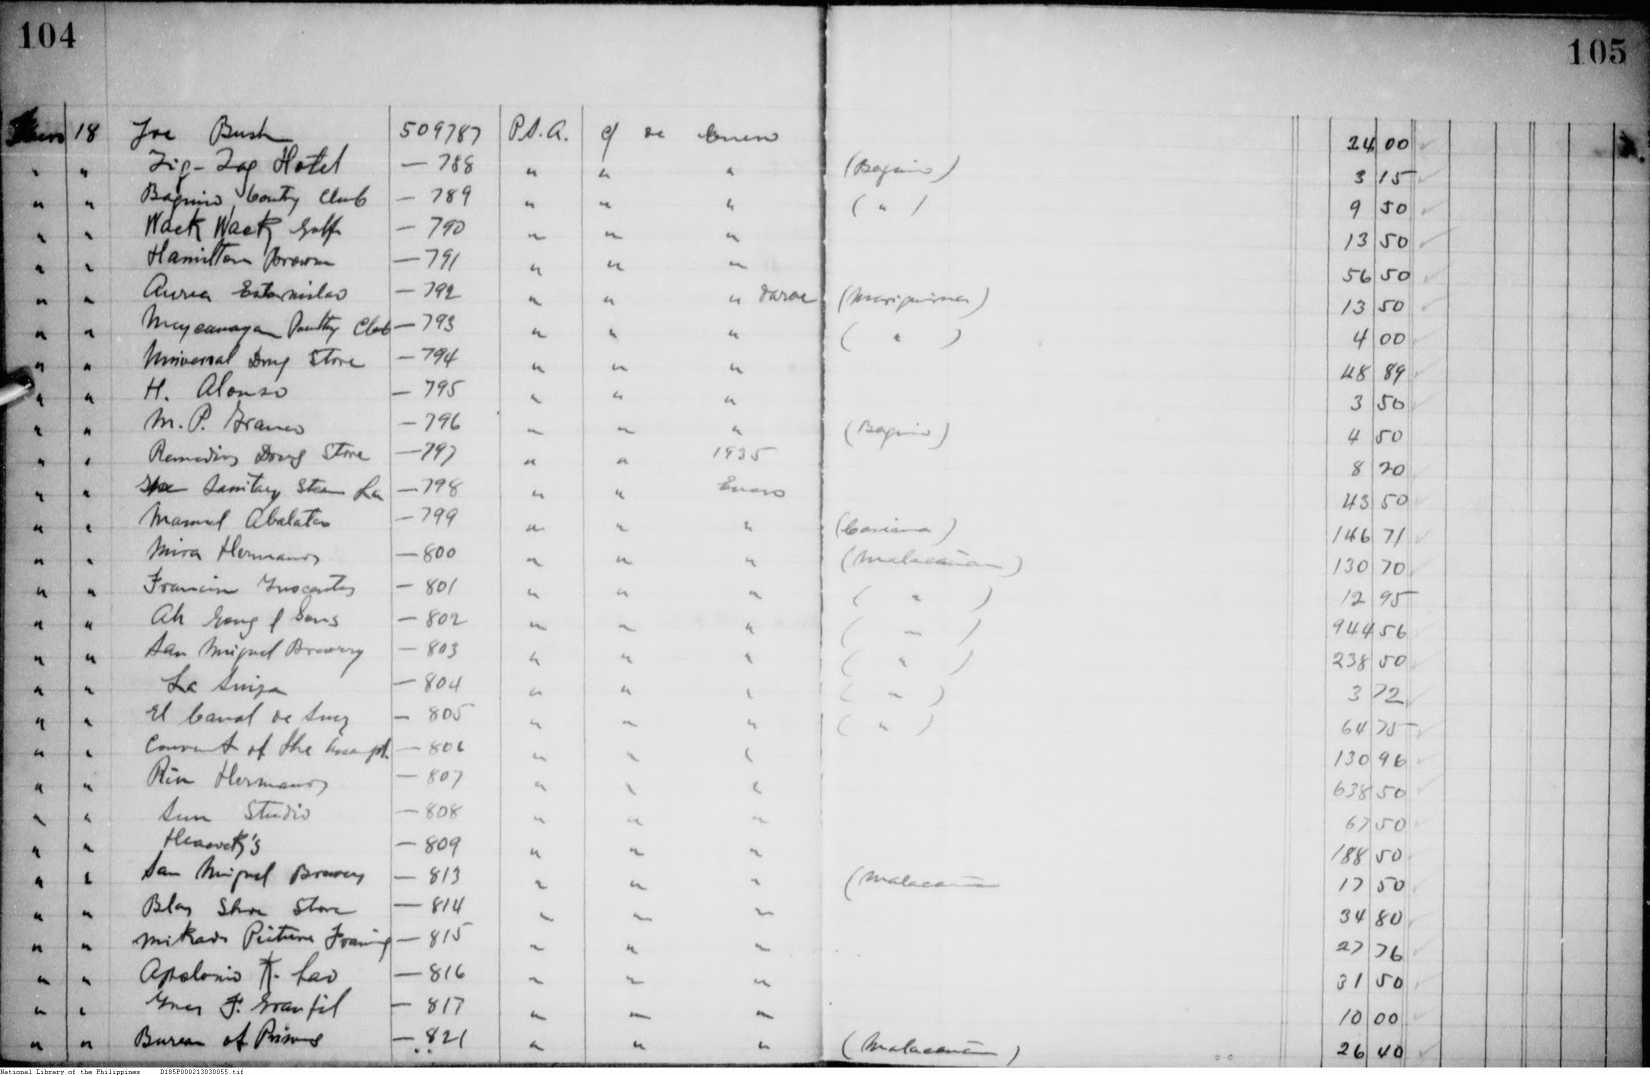 104
105
Enero 18 Joe Bush 509787 P.S.A. c/ de Enero 24 00
" " Zig-Zag Hotel — 788 " " " (Baguio) 3 15
" " Baguio Contry Club — 789 " " " ( " ) 9 50
" " Wack Wack Golf — 790 " " " 13 50
" " Hamilton Brown — 791 " " " 56 50
" " Aurea Estanislao — 792 " " " (Mariquina) 13 50
" " Meycauayan Poultry Club — 793 " " " ( " ) 4 00
" " Universal Drug Store — 794 " " " 48 89
" " H. Alonso — 795 " " " 3 50
" " M. P. Franco — 796 " " " (Baguio) 4 50
" " Remedios Drug Store — 797 " " 1935 8 20
" " Sanitary Steam La — 798 " " Enero 43 50
" " Manuel — 799 " " " 146 71
" " Mira Hermanos — 800 " " " (Malacañan) 130 70
" " — 801 " " " ( " ) 12 95
" " Ah Gong & Sons — 802 " " " ( " ) 944 56
" " San Miguel Brewery — 803 " " " ( " ) 238 50
" " La Suiza — 804 " " " ( " ) 3 72
" " El Canal de Suez — 805 " " " ( " ) 64 75
" " Convent of the Assumpt. — 806 " " " 130 96
" " Riu Hermanos — 807 " " " 638 50
" " Sun Studio — 808 " " " 67 50
" " Heacock's — 809 " " " 188 50
" " San Miguel Brewery — 813 " " " (Malacañan 17 50
" " Blas Shoe Store — 814 " " " 34 80
" " Mikado Picture Framing — 815 " " " 27 76
" " Apolonio — 816 " " " 31 50
" " — 817 " " " 10 00
" " Bureau of Prisons — 821 " " " (Malacañan) 26 40
National Library of the Philippines D185P000213030055.tif